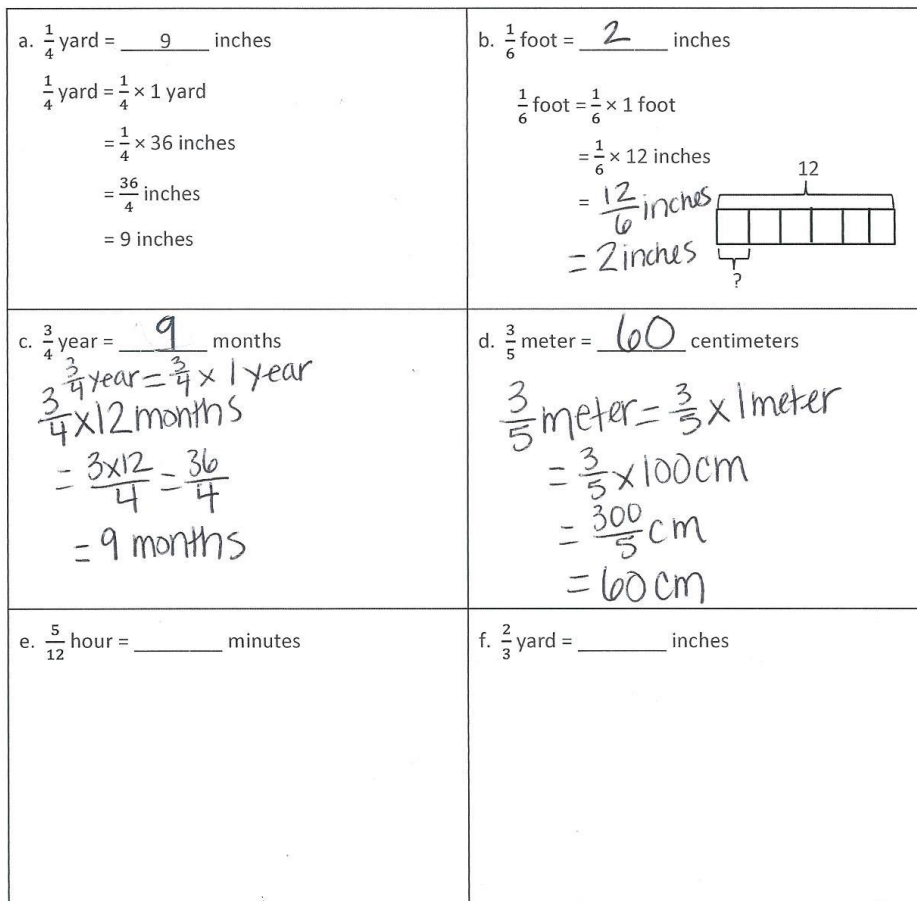 a. 1/4 yard = ___9___ inches
1/4 yard = 1/4 × 1 yard
= 1/4 × 36 inches
= 36/4 inches
= 9 inches
b. 1/6 foot = ___2___ inches
1/6 foot = 1/6 × 1 foot
= 1/6 × 12 inches
= 12/6 inches
= 2 inches
12
?
c. 3/4 year = ___9___ months
3/4 year = 3/4 × 1 year
3/4 × 12 months
= 3×12/4 = 36/4
= 9 months
d. 3/5 meter = ___60___ centimeters
3/5 meter = 3/5 × 1 meter
= 3/5 × 100 cm
= 300/5 cm
= 60 cm
e. 5/12 hour = ________ minutes
f. 2/3 yard = ________ inches